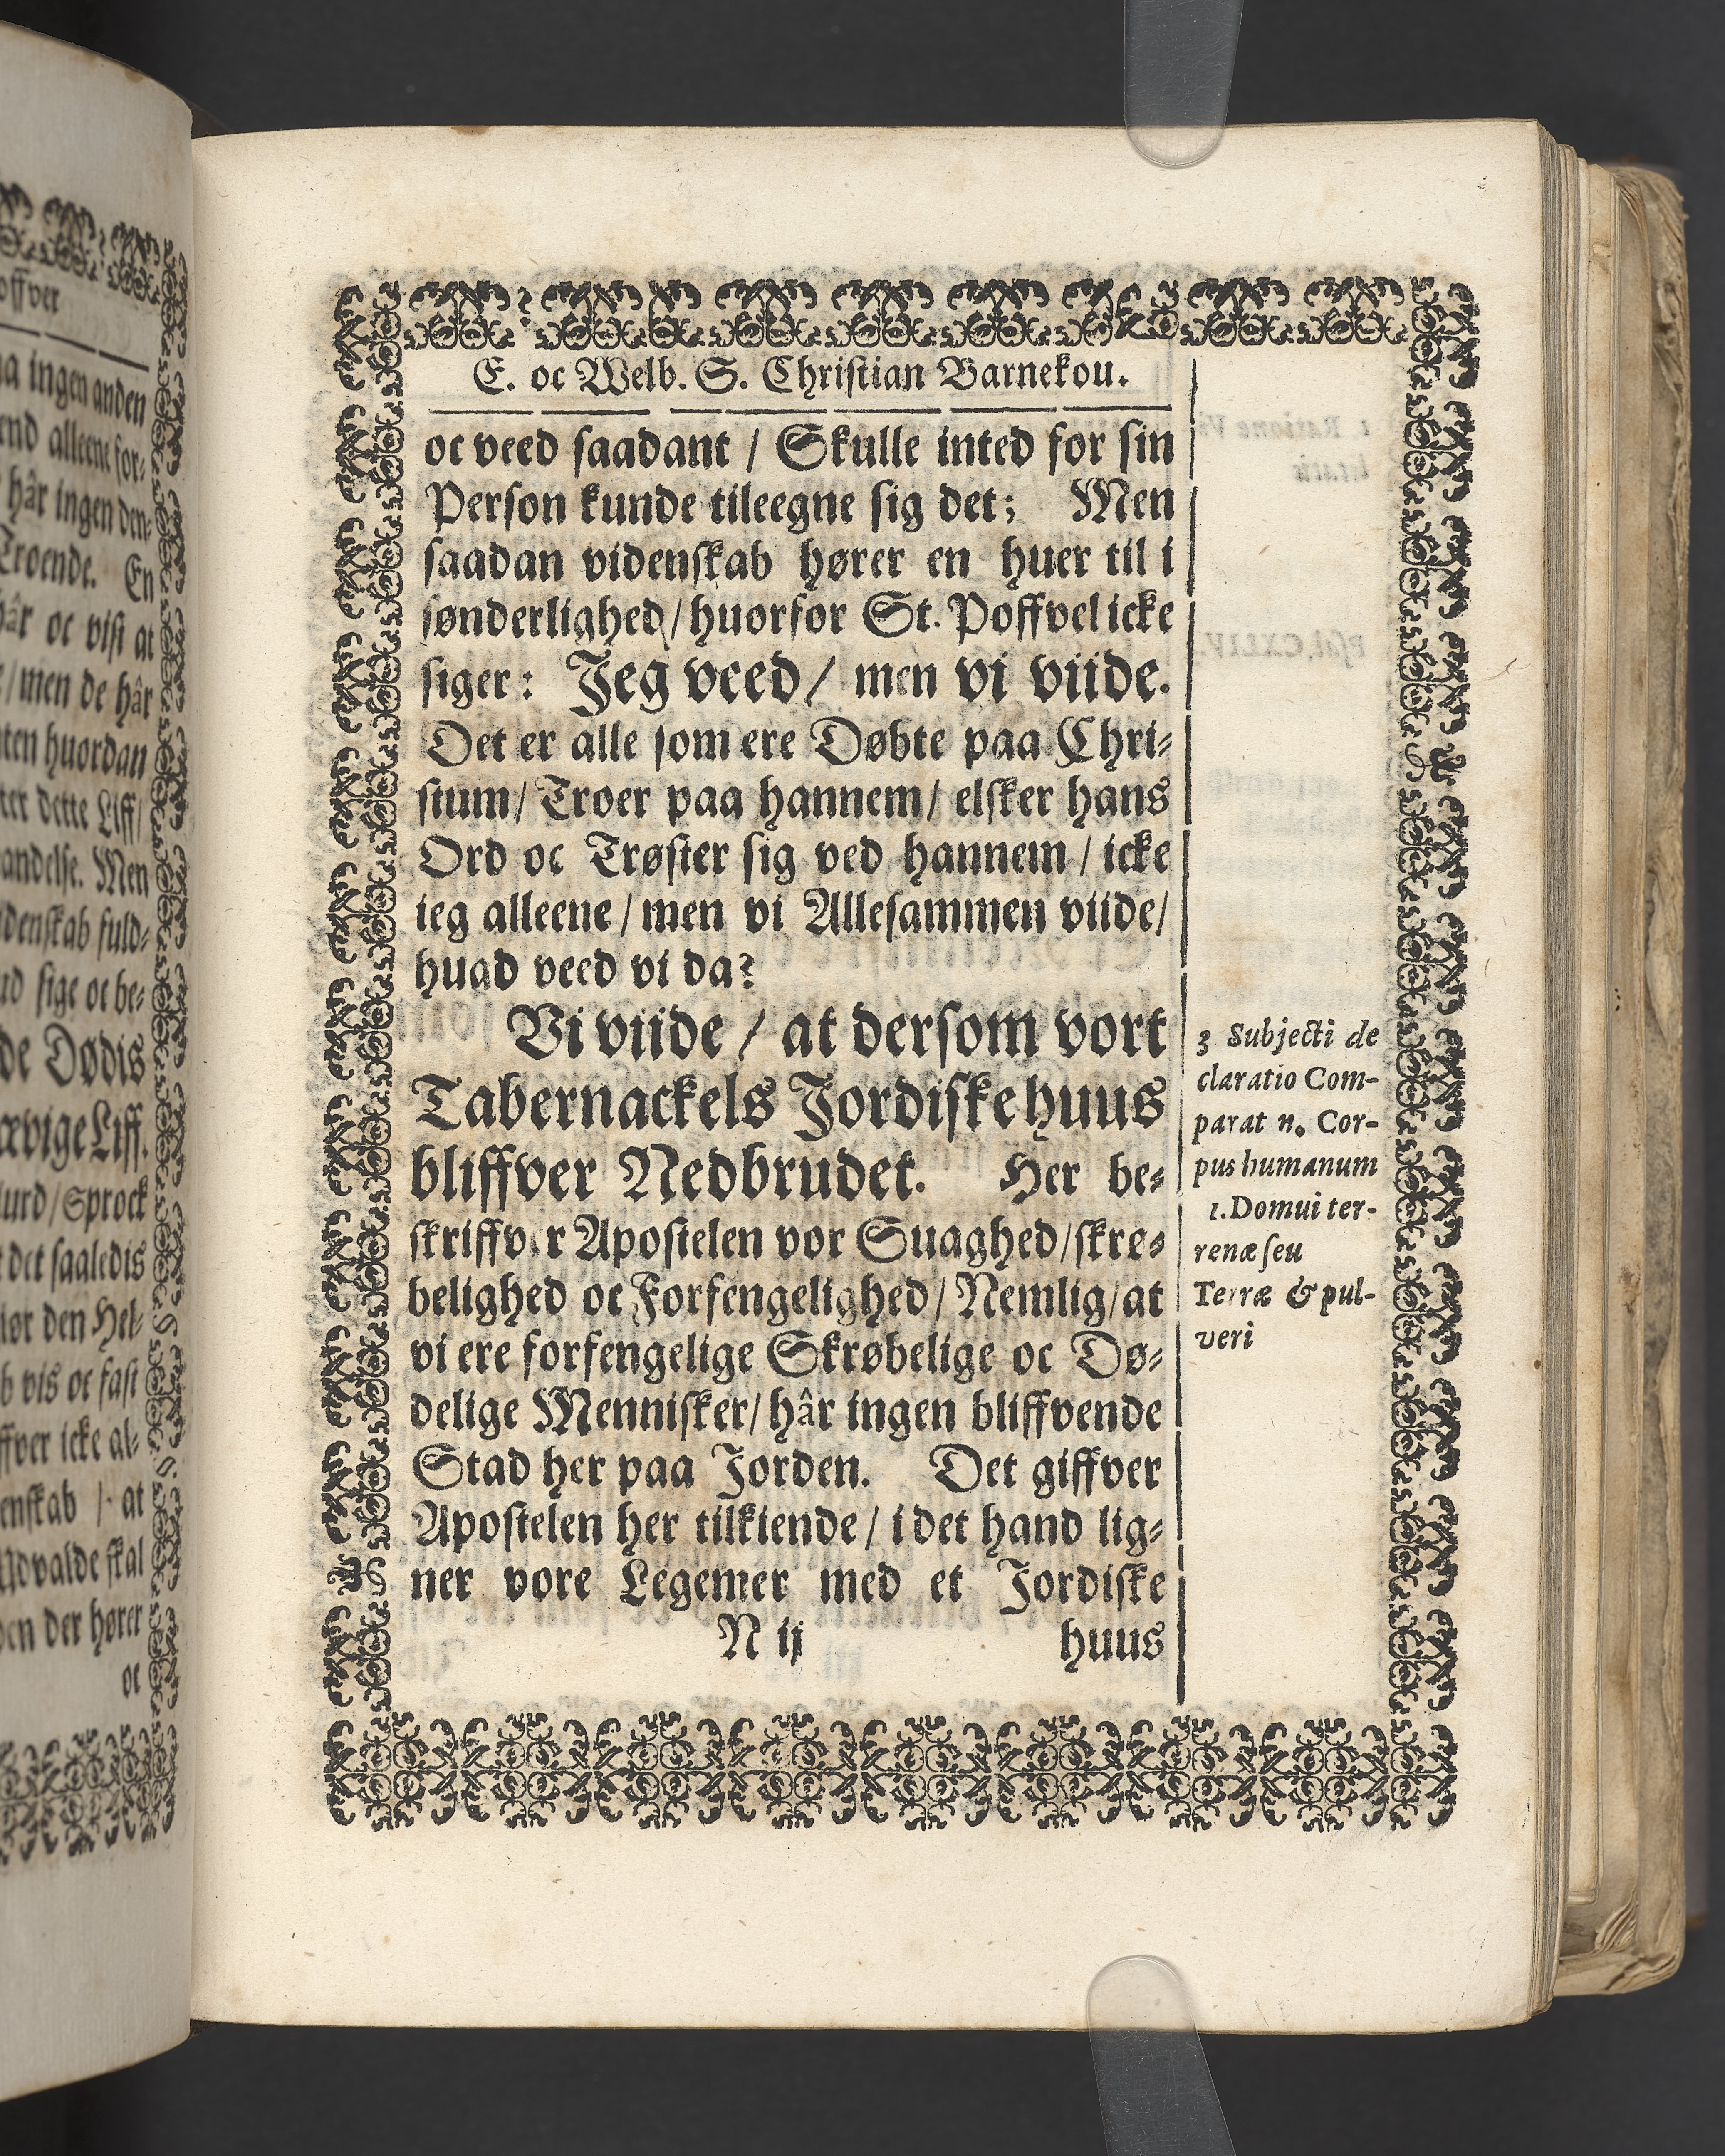 offver
a ingen anden
end alleene for-
hâr ingen den-
Troende. En
hâr oc vist at
/ men de hâr
ten huordan
ter dette Liff/
andelse. Men
idenskab fuld-
ud sige oc be-
de Dødis
ævige Liff.
urd / Sprock
det saaledis
iør den Hel-
b vis oc fast
ffver icke al-
enskab / at
Advalde skal
den der hører
oc
E. oc Welb. S. Christian Barnekou.
oc veed saadant / Skulle inted for sin
Person kunde tileegne sig det; Men
saadan videnskab hører en huer til i
sønderlighed / huorfor St. Poffvel icke
siger: Jeg veed / men vi viide.
Det er alle som ere Døbte paa Chri-
stum / Troer paa hannem / elsker hans
Ord oc Trøster sig ved hannem / icke
ieg alleene / men vi Allesammen viide /
huad veed vi da?
Vi viide / at dersom vort
Tabernackels Jordiske huus
bliffver Nedbrudet. Her be-
skriffver Apostelen vor Suaghed / skrø-
belighed oc Forfengelighed / Nemlig / at
vi ere forfengelige Skrøbelige oc Dø-
delige Mennisker / hâr ingen bliffvende
Stad her paa Jorden. Det giffver
Apostelen her tilkiende / i det hand lig-
ner vore Legemer med et Jordiske
N ij huus
3 Subjecti de
claratio Com-
parat n. Cor-
pus humanum
1. Domui ter-
renæ seu
Terræ & pul-
veri